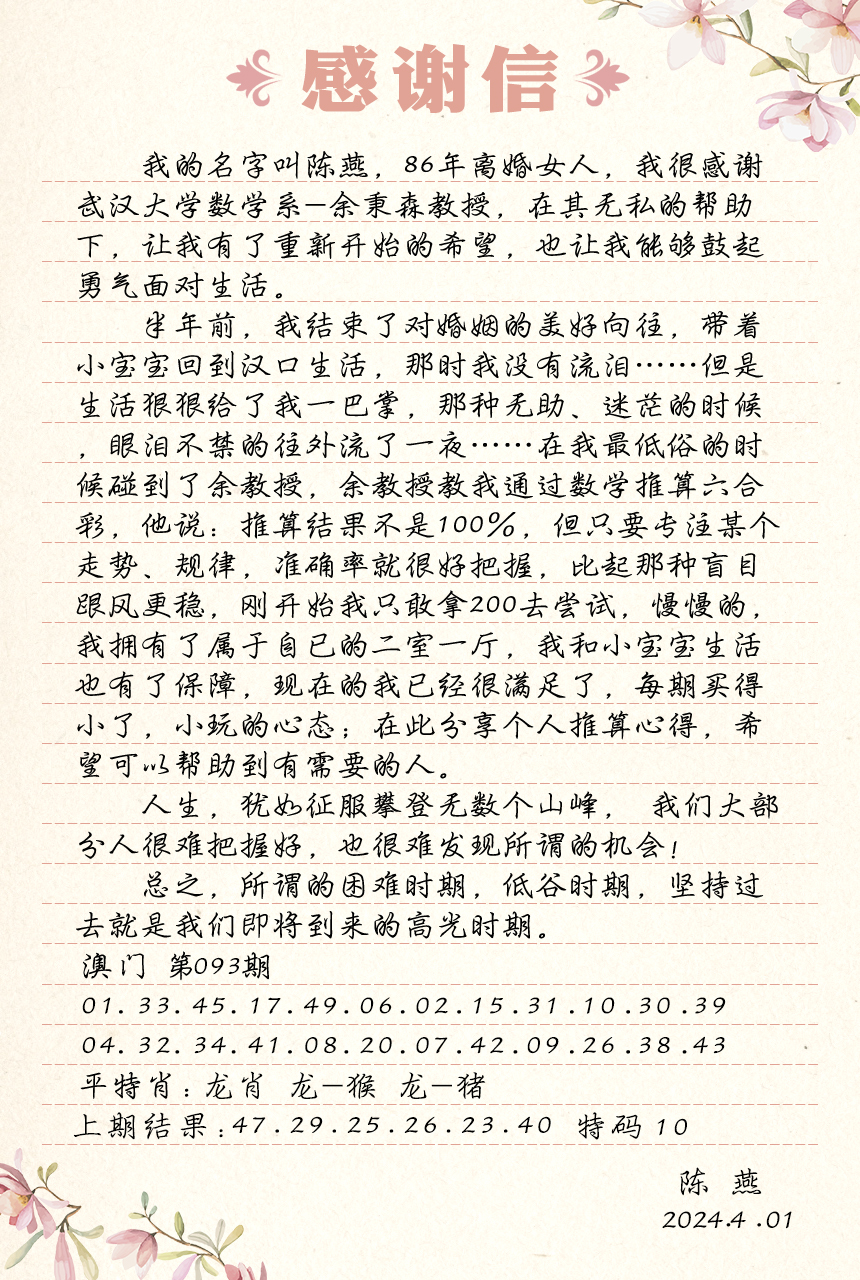 感谢信
我的名字叫陈燕，86年离婚女人，我很感谢
武汉大学数学系—余秉森教授，在其无私的帮助
下，让我有了重新开始的希望，也让我能够鼓起
勇气面对生活。
半年前，我结束了对婚姻的美好向往，带着
小宝宝回到汉口生活，那时我没有流泪……但是
生活狠狠给了我一巴掌，那种无助、迷茫的时候
，眼泪不禁的往外流了一夜……在我最低俗的时
候碰到了余教授，余教授教我通过数学推算六合
彩，他说：推算结果不是100%，但只要专注某个
走势、规律，准确率就很好把握，比起那种盲目
跟风更稳，刚开始我只敢拿200去尝试，慢慢的，
我拥有了属于自己的二室一厅，我和小宝宝生活
也有了保障，现在的我已经很满足了，每期买得
小了，小玩的心态；在此分享个人推算心得，希
望可以帮助到有需要的人。
人生，犹如征服攀登无数个山峰， 我们大部
分人很难把握好，也很难发现所谓的机会！
总之，所谓的困难时期，低谷时期，坚持过
去就是我们即将到来的高光时期。
澳门 第093期
01.33.45.17.49.06.02.15.31.10.30.39
04.32.34.41.08.20.07.42.09.26.38.43
平特肖：龙肖 龙—猴 龙—猪
上期结果：47.29.25.26.23.40 特码 10
陈 燕
2024.4.01